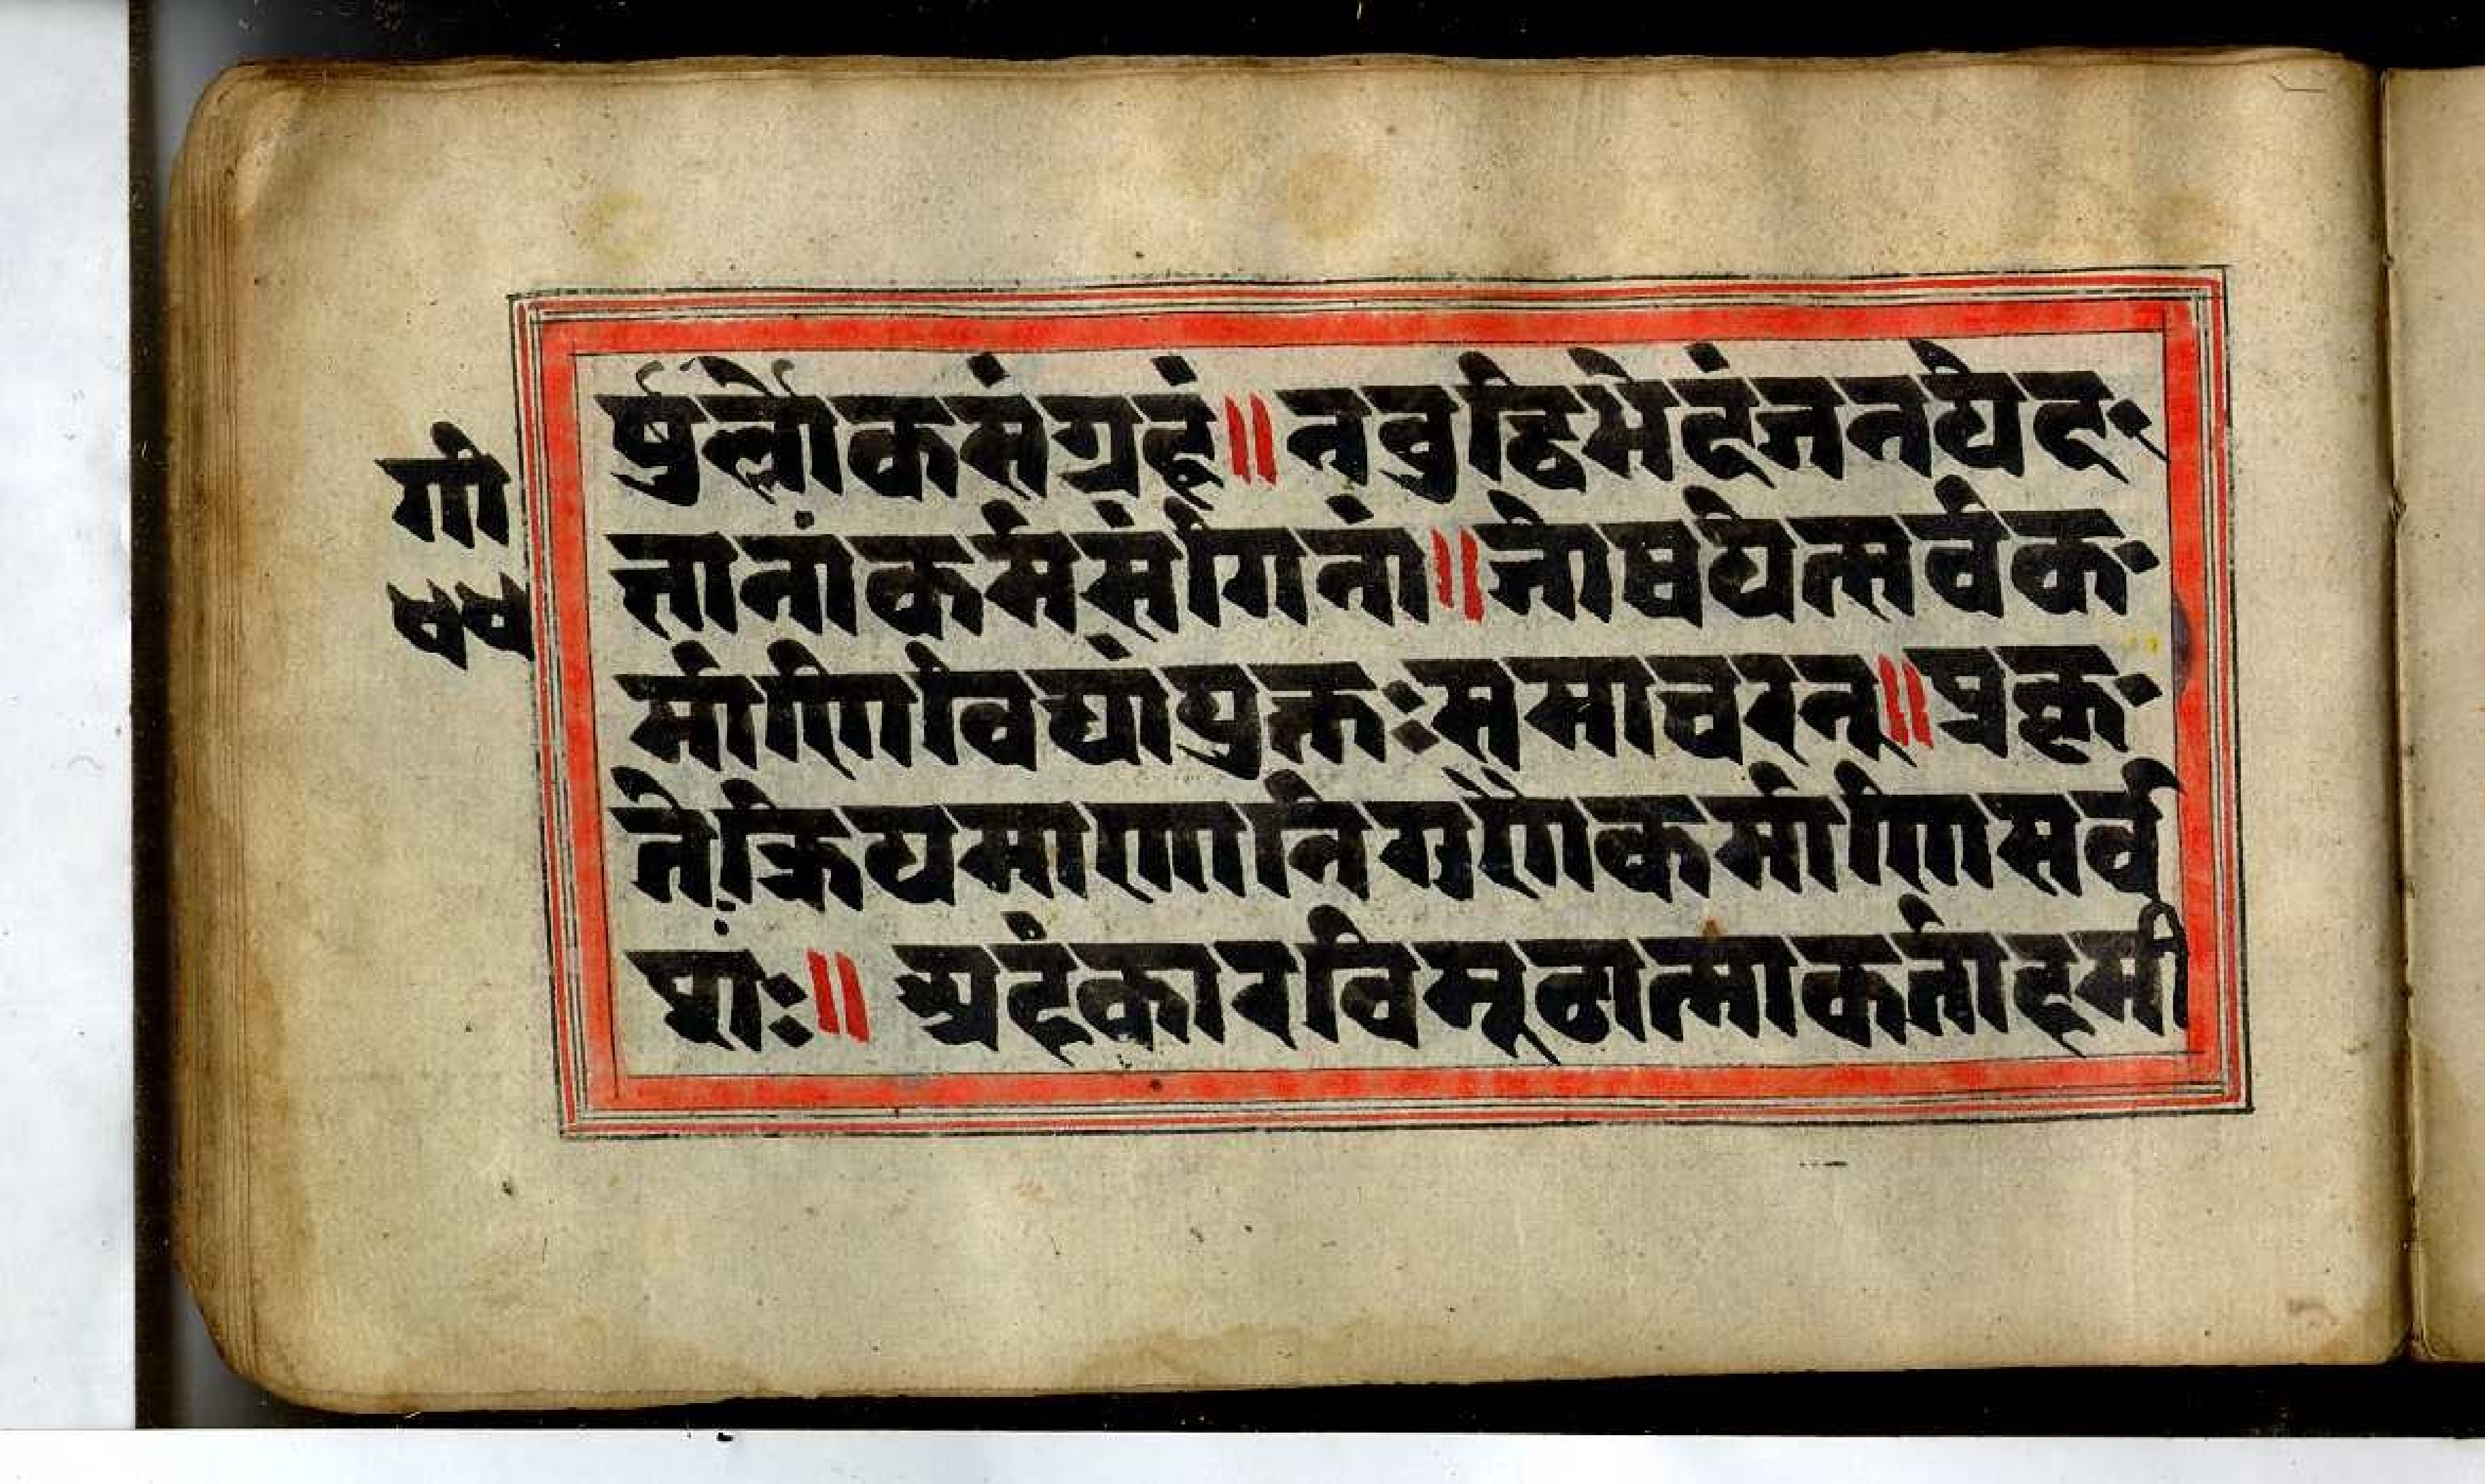 र्षुर्लोकसंग्रहं॥ नबुद्धिभेदंजनयेद
ज्ञानांकर्मसंगिनां॥ जोषयेत्सर्वक
र्माणिविद्यांयुक्तःसमाचरन्॥ प्रकृ
तेक्रियमाणानिगुणैकर्माणिसर्व
षां॥ अहंकारविमूढात्माकर्ताहमी
गी